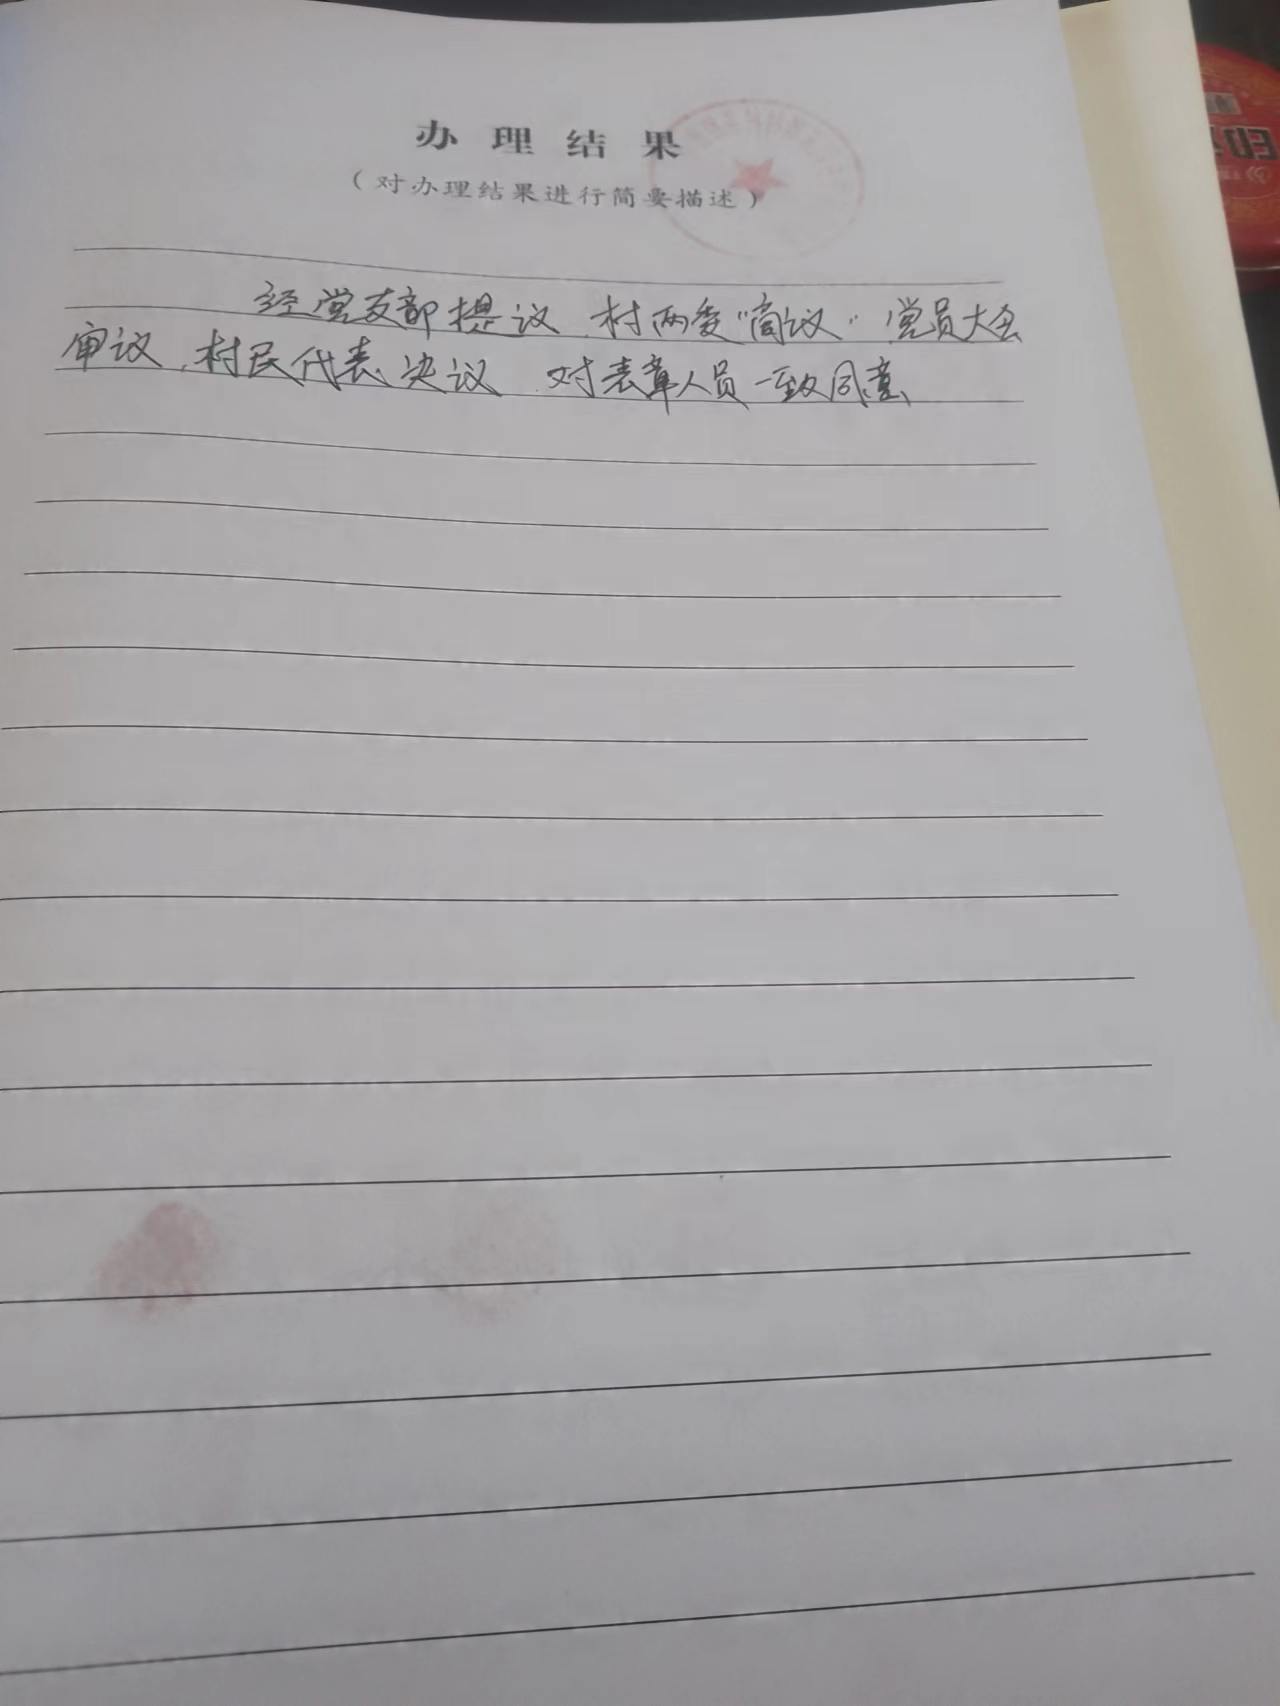 办理结果
（对办理结果进行简要描述）
经党支部提议 村两委"商议" 党员大会
审议、村民代表决议 对表章人员一致同意